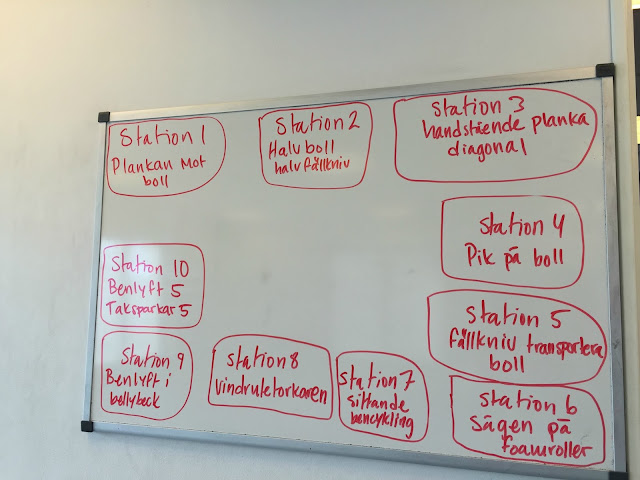 Station 1
Plankan mot
boll
Station 2
Halv boll
halv fällkniv
Station 3
handstående planka
diagonal
Station 4
Pik på boll
Station 5
fällkniv transportera
boll
Station 6
Sågen på
foamroller
Station 7
sittande
bencykling
Station 8
vindrutetorkaren
Station 9
Benlyft i
bollybeck
Station 10
Benlyft 5
Taksparkar 5